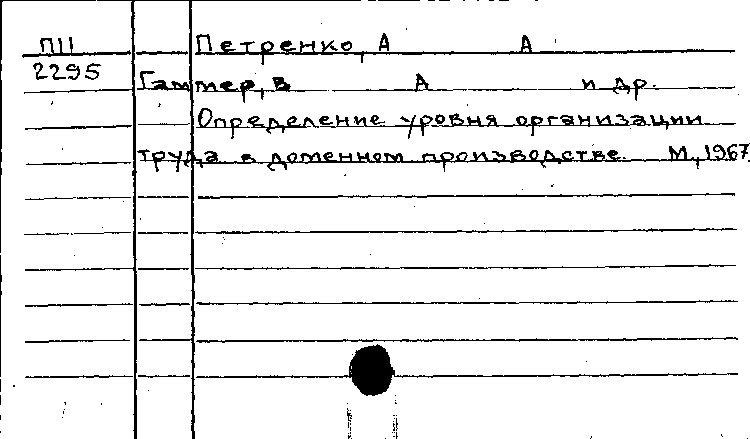 П11 Петренко, А А
2295 Гаммер, В А и др.
Определение уровня организации
труда в доменном производстве. М, 1967